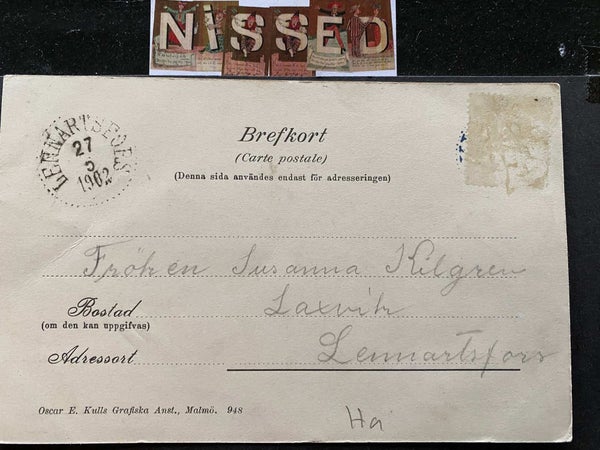 NiSSED
LENNARTSFORS
27
5
1902
Brefkort
(Carte postale)
(Denna sida användes endast för adresseringen)
Fröken Susanna Kilgren
Bostad Laxvik
(om den kan uppgifvas)
Adressort Lennartsfors
Oscar E. Kulls Grafiska Anst., Malmö. 948